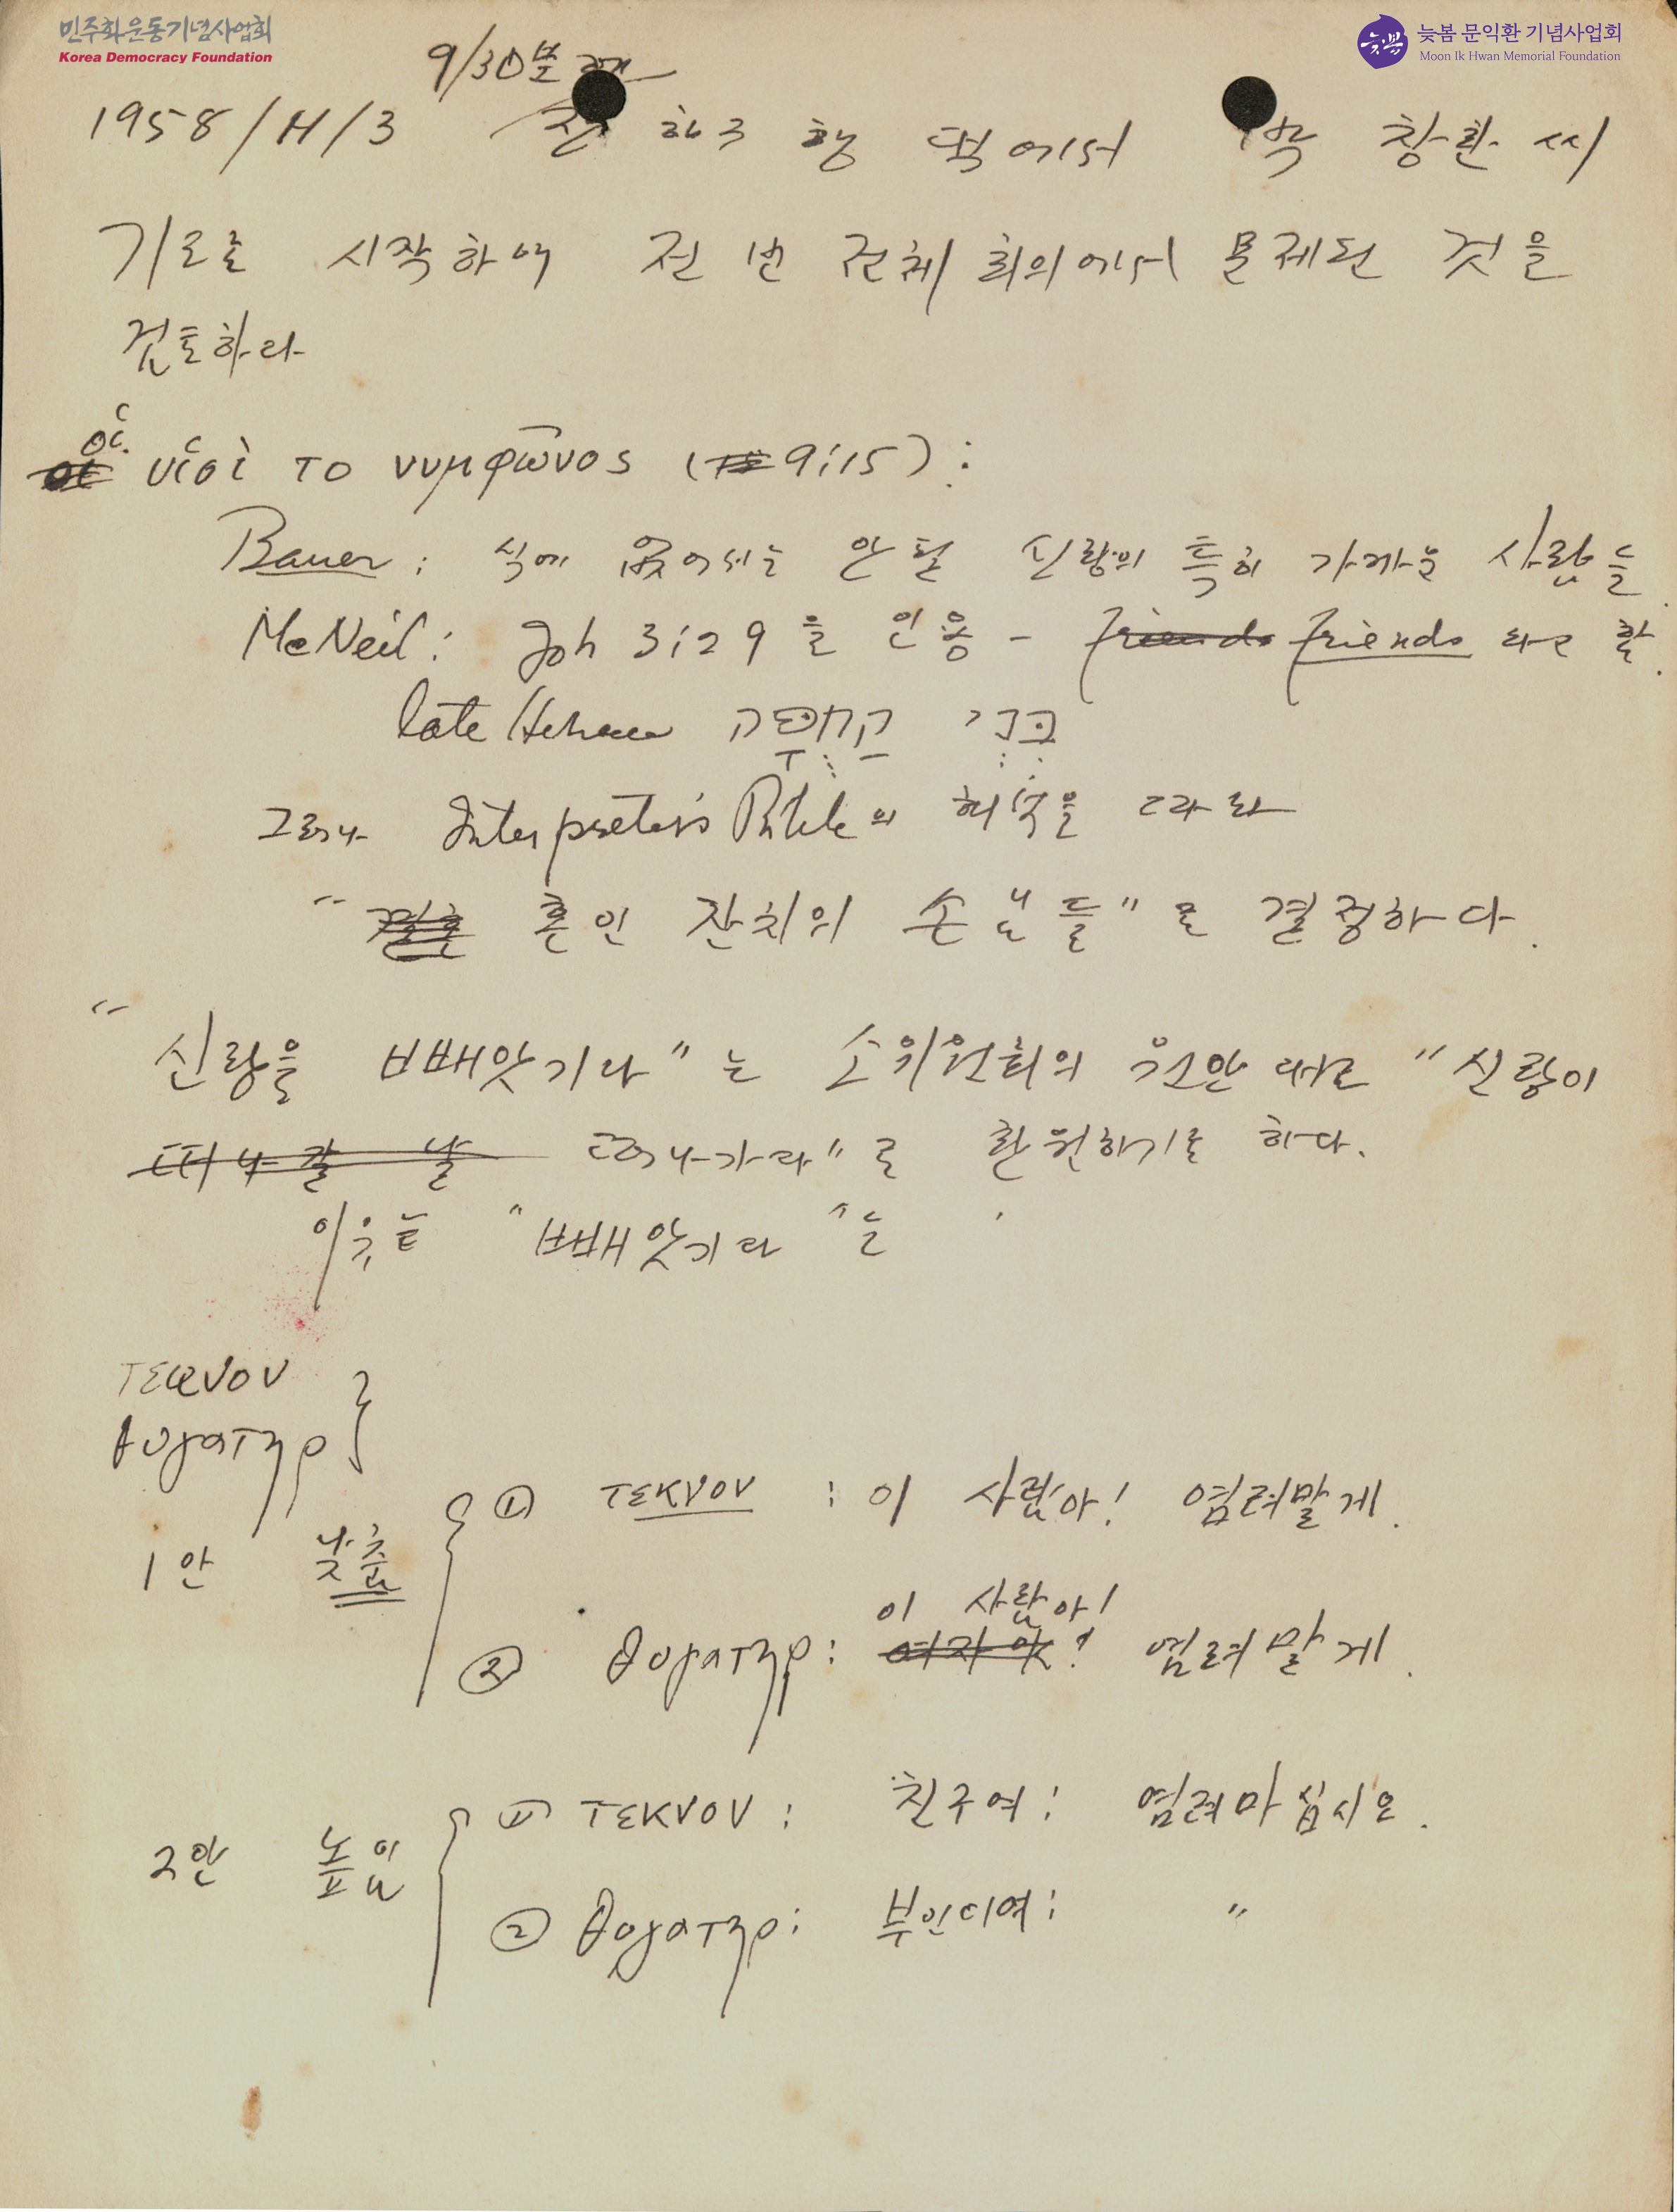 민주화운동기념사업회
Korea Democracy Foundation
늦봄 문익환 기념사업회
Moon Ik Hwan Memorial Foundation
늦봄
9/30분
1958/11/3 전 행 댁에서 창환씨
기도로 시작하여 전번 전체회의에서 문제된 것을
검토하다
οἱ υἱοὶ το νυμφῶνος (9:15):
Bauer: 식에 없어서는 안될 신랑의 특히 가까운 사람들.
McNeil: Joh 3:29을 인용 - friends friends 라고 함.
late Hebrew
그러나 Interpreter's Bible의 해석을 따라
"결혼 혼인 잔치의 손님들"로 결정하다.
"신랑을 빼앗기다"는 소위원회의 원안대로 "신랑이
떠나갈 날 떠나가다"로 환원하기로 하다.
이유는 "빼앗기다"는
τεκνον
θυγατηρ
1안 낮춤
① τεκνον : 이 사람아! 염려말게.
이 사람아!
② θυγατηρ: 여자야! 염려말게.
2안 높임
① τεκνον: 친구여! 염려마십시오.
② θυγατηρ: 부인이여! "